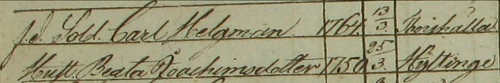 f.d. Sold. Carl Helgman 1764. 13/3. Thorshälla
Hust. Beata Joachimsdotter 1750 25/3. Hyltinge